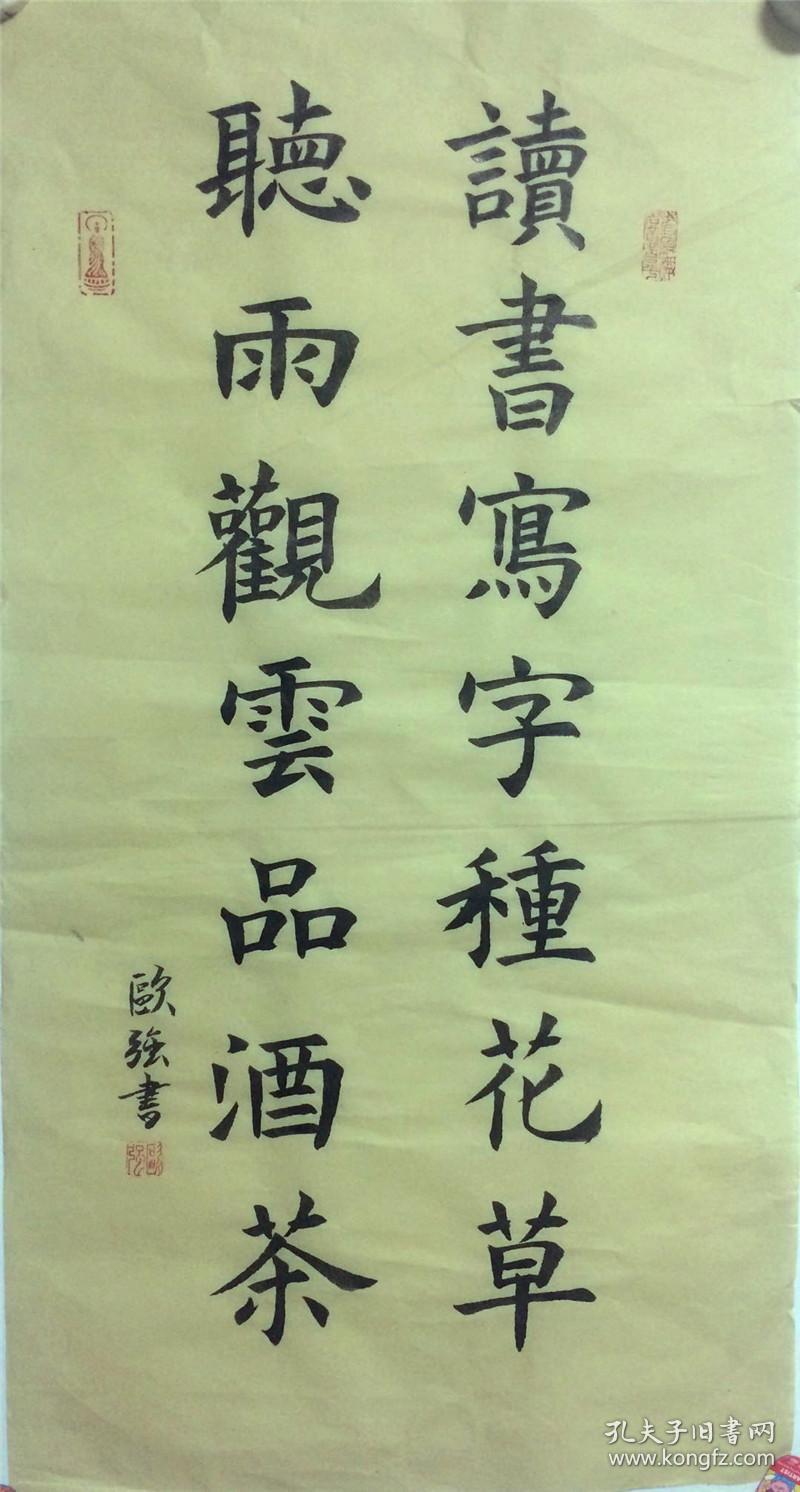 讀書寫字種花草
聽雨觀雲品酒茶
歐強書
孔夫子旧书网
www.kongfz.com